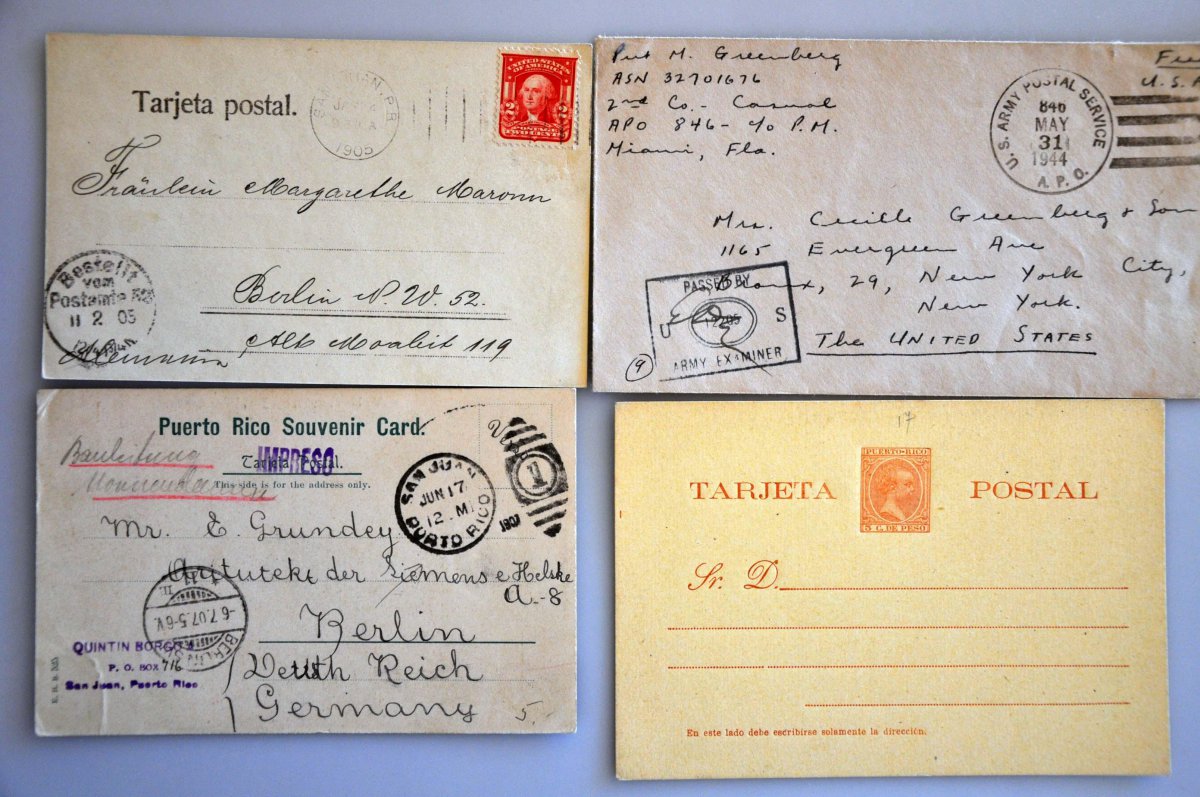 Tarjeta postal.
JUAN, P.R.
1905
UNITED STATES
OF AMERICA
2 2
POSTAGE
TWO CENTS
Fräulein Margarethe Maronn
Berlin N.W. 52.
Alt Moabit 119
Alemania
Bestellt
vom
Postamte 52
11 2 05
Pvt M. Greenberg
ASN 32701676
2nd Co. - Casual
APO 846 - c/o P.M.
Miami, Fla.
Free
U.S. A
U.S. ARMY POSTAL SERVICE
846
MAY
31
1944
A.P.O.
Mrs. Cecille Greenberg & Son
1165 Evergreen Ave
Bronx, 29, New York City,
New York.
The UNITED STATES
PASSED BY
U S
ARMY EXAMINER
9
Puerto Rico Souvenir Card.
Tarjeta Postal.
IMPRESO
This side is for the address only.
Bauleitung
SAN JUAN
JUN 17
12. M
PORTO RICO
1907
1
Mr. E. Grundey
der Siemens e Helske
A.-8
Berlin
Deuth Reich
Germany
-6.7.07.5-6V.
BERLIN
QUINTIN BORGO
P. O. BOX 716
San Juan, Puerto Rico
5.
17
TARJETA POSTAL
PUERTO-RICO
5 C. DE PESO
Sr. D.
En este lado debe escribirse solamente la dirección.